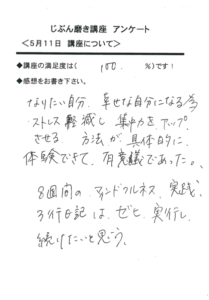 じぶん磨き講座 アンケート
＜5月11日 講座について＞
◆講座の満足度は( 100. %)です！
◆感想をお書き下さい。
なりたい自分、幸せな自分になる為
ストレス軽減し 集中力をアップ
させる 方法が 具体的に
体験できて、有意義であった。
8週間の マインドフルネス 実践、
3行日記は、ぜひ 実行し
続けたいと思う。